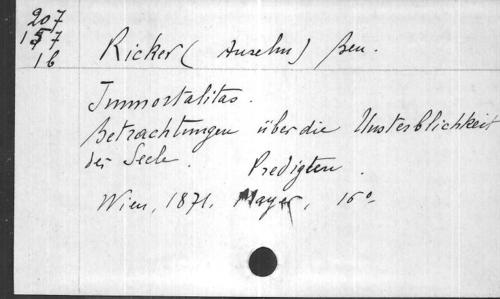 207
157
16
Ricker (Anselm) Ben.
Immortalitas.
Betrachtungen über die Unsterblichkeit
der Seele. Predigten.
Wien, 1871. Mayer, 16°.